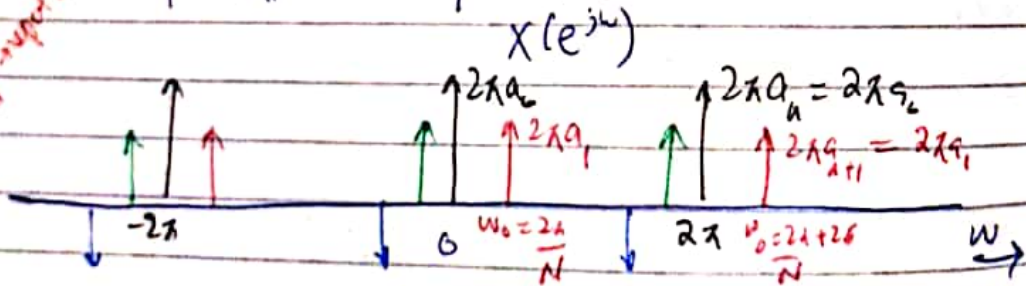 X(e^{jω})
2πa₀ 2πa_N = 2πa₀
2πa₁ 2πa_{N+1} = 2πa₁
-2π 0 ω₀ = 2π/N 2π ω₀ = 2π + 2π/N ω